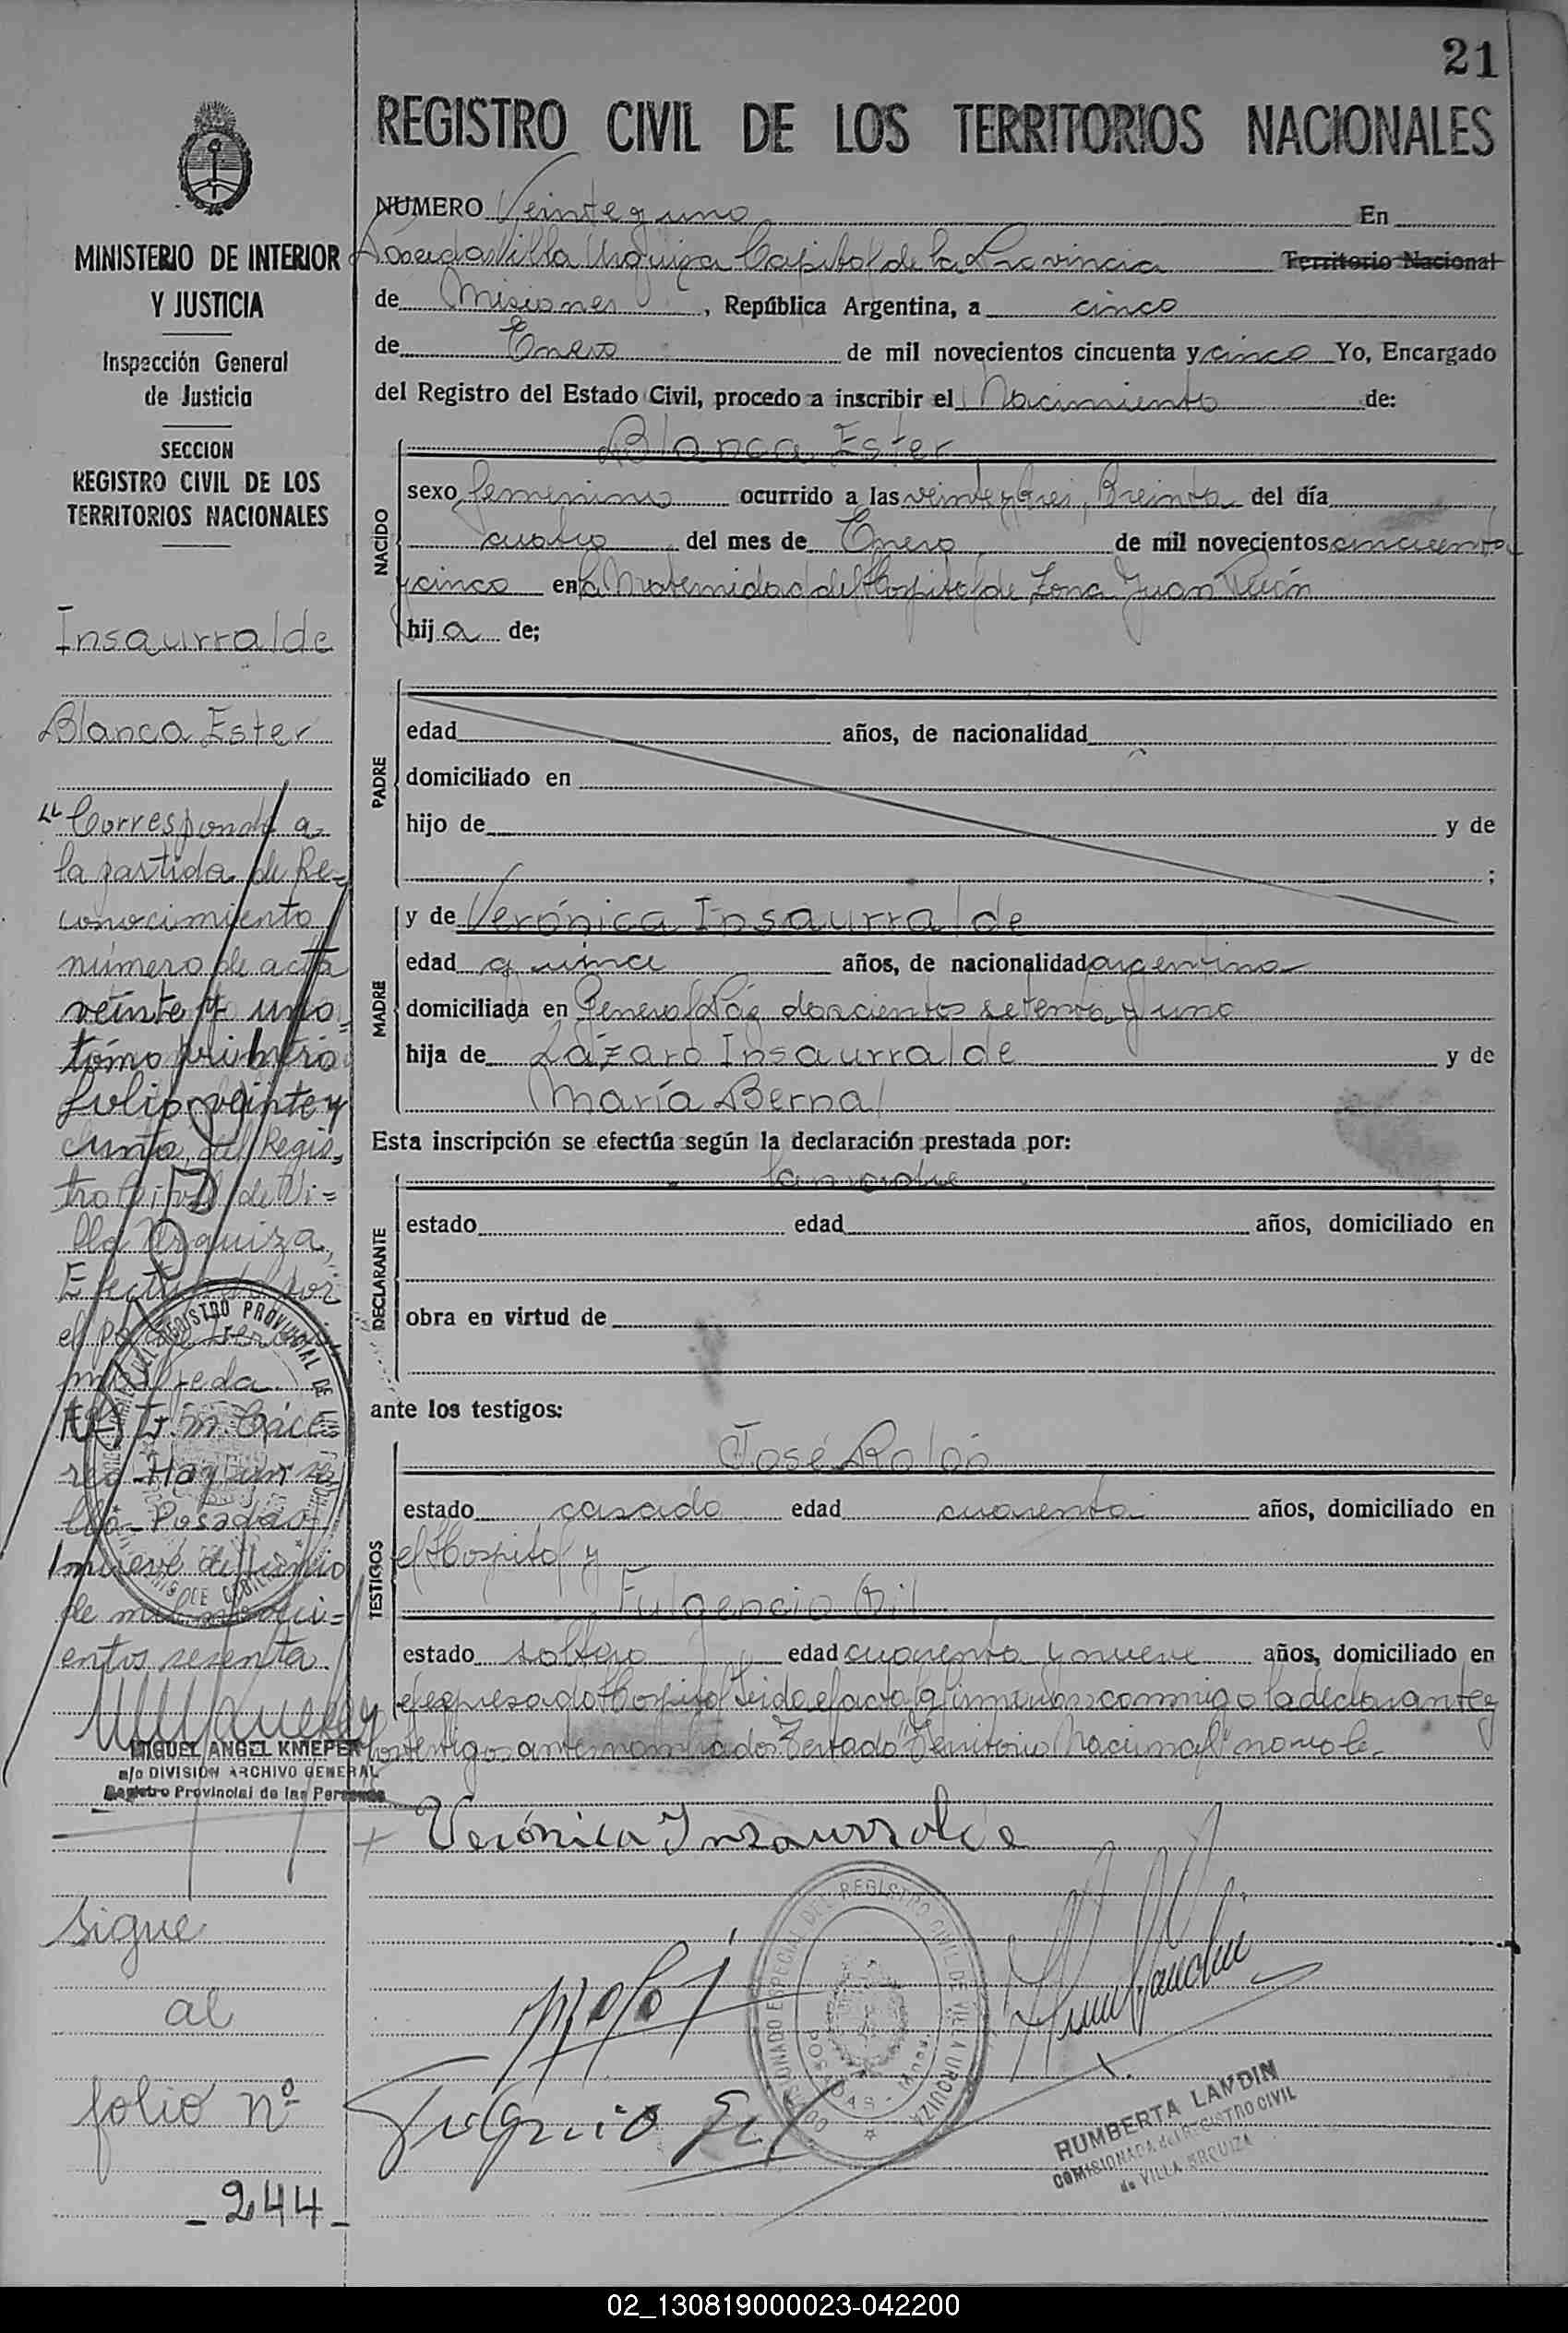 21
REGISTRO CIVIL DE LOS TERRITORIOS NACIONALES
MINISTERIO DE INTERIOR
Y JUSTICIA
Inspección General
de Justicia
SECCION
REGISTRO CIVIL DE LOS
TERRITORIOS NACIONALES
Insaurralde
Blanca Ester
"Corresponde a
la partida de Re=
conocimiento
número de acta
veinte y uno
tomo primero
folio veinte y
del Regis=
tro Civil de Vi=
lla Urquiza,
Efectuado por
el
F. M. Cáce=
res Hay un se
llo - Posadas
nueve de junio
de mil noveci=
entos sesenta.
MIGUEL ANGEL KNIEPER
a/c DIVISIÓN ARCHIVO GENERAL
Registro Provincial de las Personas
sigue
al
folio nº
- 244 -
NUMERO Veinte y uno En
Posadas Villa Urquiza Capital de la Provincia Territorio Nacional
de Misiones, República Argentina, a cinco
de Enero de mil novecientos cincuenta y cinco Yo, Encargado
del Registro del Estado Civil, procedo a inscribir el Nacimiento de:
NACIDO
Blanca Ester
sexo femenino ocurrido a las veinte y tres, treinta del día
cuatro del mes de Enero de mil novecientos cincuenta
y cinco en la Maternidad del Hospital de Zona Juan Perón
hija de;
PADRE
edad años, de nacionalidad
domiciliado en
hijo de y de
;
MADRE
y de Verónica Insaurralde
edad quince años, de nacionalidad argentina
domiciliada en General Paz doscientos setenta y uno
hija de Lázaro Insaurralde y de
María Bernal
Esta inscripción se efectúa según la declaración prestada por:
DECLARANTE
la madre
estado edad años, domiciliado en
obra en virtud de
ante los testigos:
TESTIGOS
José Rolón
estado casado edad cuarenta años, domiciliado en
el Hospital y
Fulgencio Gil
estado soltero edad cuarenta y nueve años, domiciliado en
el expresado Hospital Leida el acta la firmaron conmigo la declarante y
los testigos antes nombrados. Testado "Territorio Nacional" no vale.
Verónica Insaurralde
COMISIONADO ESPECIAL DEL REGISTRO CIVIL DE VILLA URQUIZA
POSADAS - MNES.
Fulgencio Gil
HUMBERTA LANDIN
COMISIONADA del REGISTRO CIVIL
de VILLA URQUIZA
02_130819000023-042200